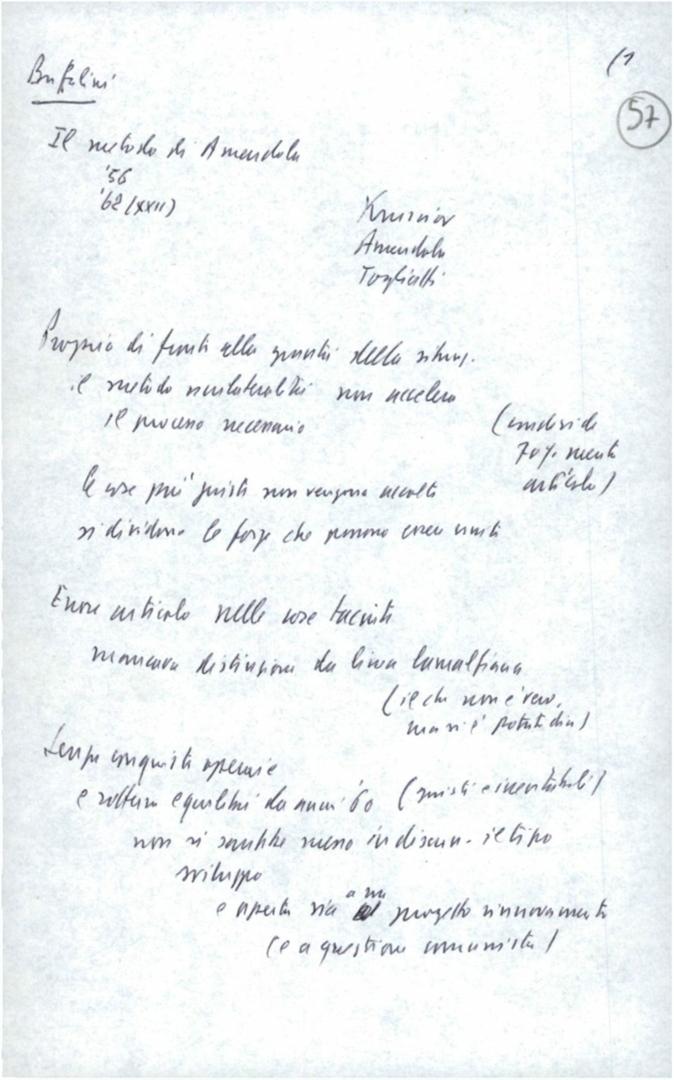 (1
57
Bufalini
Il metodo di Amendola
'56
'62 (XXII)
Krusciov
Amendola
Togliatti
Proprio di fronte alla gravità della situaz.
il metodo unilateralità non accelera
il processo necessario
(condivide
70% menti
articolo)
le cose più giuste non vengono accolte
si dividono le forze che possono essere unite
Errore articolo nelle cose taciute
mancava distinzione da linea lamalfiana
(il che non è vero,
ma si è potuto dire)
Senza conquiste operaie
e rottura equilibri da anni '60 (giusti e inevitabili)
non si sarebbe messo in discuss. il tipo
sviluppo
e aperta via a un progetto rinnovamento
(e a questione comunista)